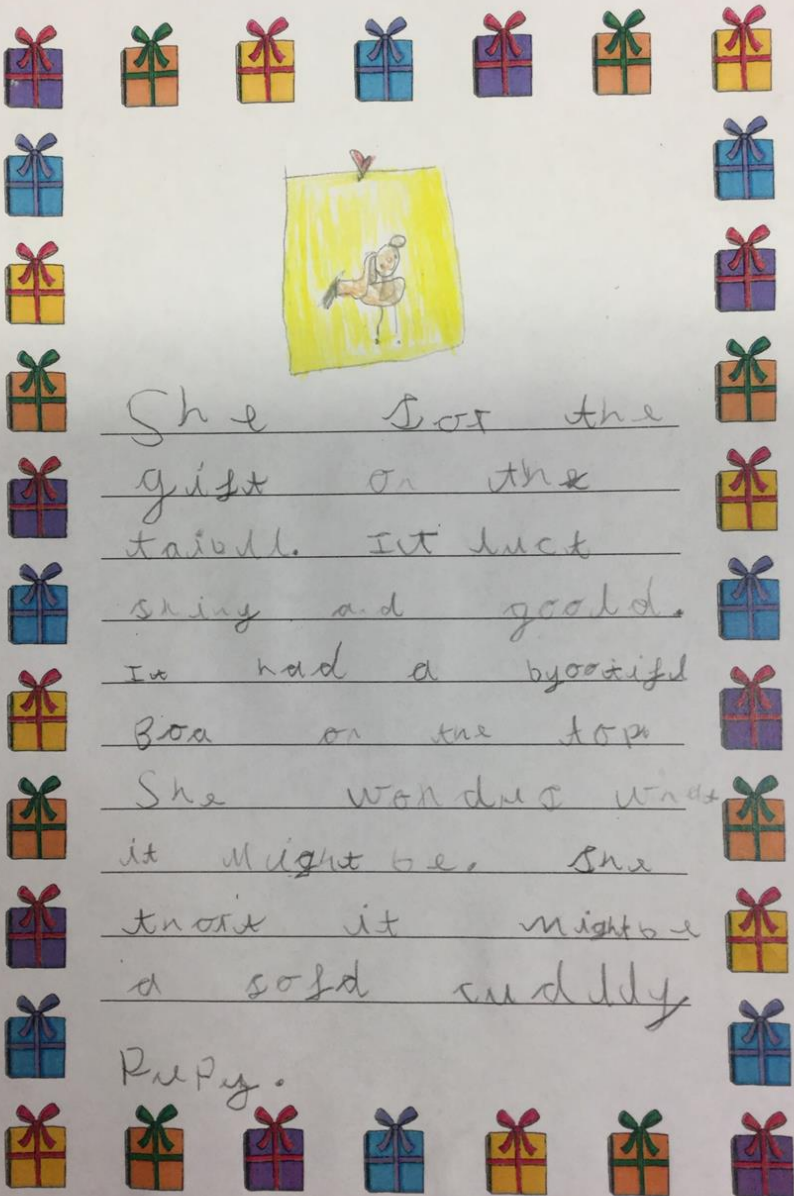 She sor the
gift on the
taibull. Iut luct
shiny and goold.
It had a byootifl
Boa on the top
She wondus what
it might be. She
thort it mightbe
a sofd cudldy
Pupy.